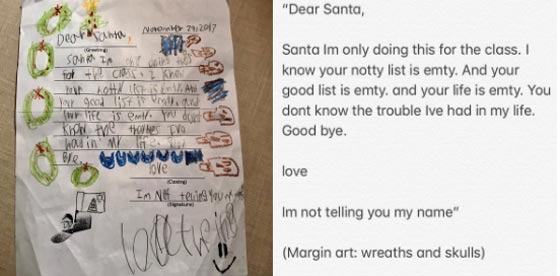 November 29, 2017
Dear Santa,
(Greeting)
Santa Im only doing this
for the class. I know
your notty list is emty. And
your good list is emty. and
your life is emty. You dont
know the trouble Ive
had in my life. Good
bye.
love
(Closing)
Im Not telling you my
(Signature)
"Dear Santa,
Santa Im only doing this for the class. I
know your notty list is emty. And your
good list is emty. and your life is emty. You
dont know the trouble Ive had in my life.
Good bye.
love
Im not telling you my name"
(Margin art: wreaths and skulls)